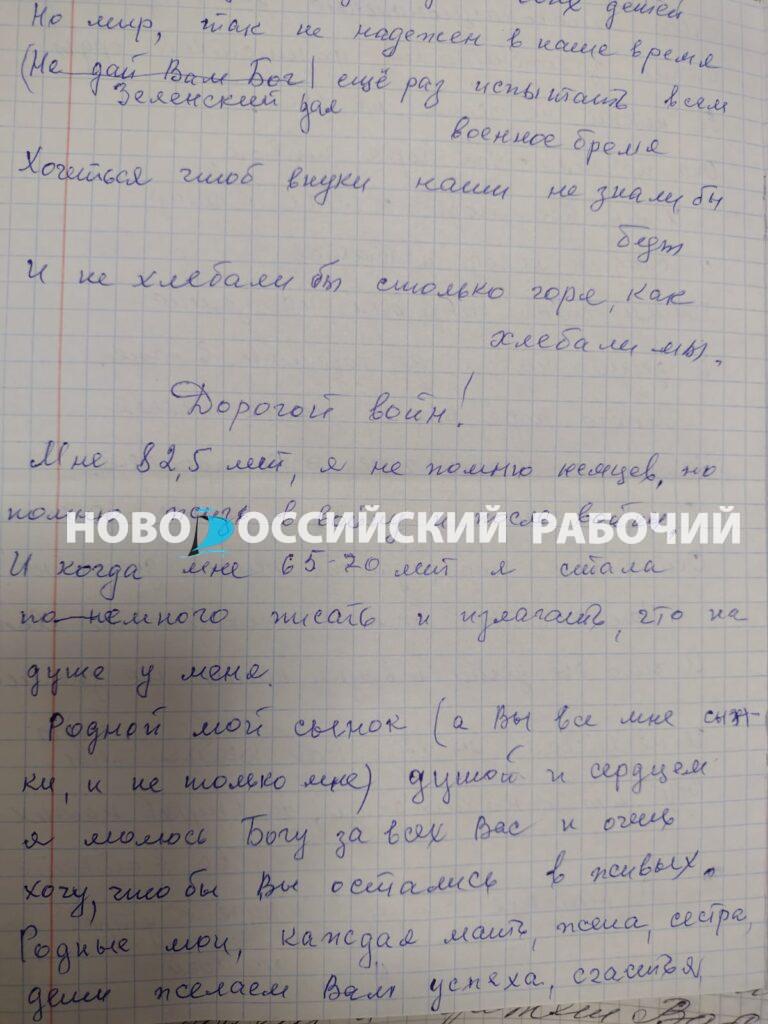 детей
Но мир, так не надежен в наше время
(Не дай Вам Бог) ещё раз испытать всем
Зеленский дал
военное бремя
Хочеться чтоб внуки наши не знали бы
беды
И не хлебали бы столько горя, как
хлебали мы.
Дорогой воин!
Мне 82,5 лет, я не помню немцев, но
помню в войну и после войны.
НОВОРОССИЙСКИЙ РАБОЧИЙ
И когда мне 65-70 лет я стала
по-немного писать и излагать, что на
душе у меня.
Родной мой сынок (а Вы все мне сын-
ки, и не только мне) душой и сердцем
я молюсь Богу за всех Вас и очень
хочу, что бы Вы остались в живых.
Родные мои, каждая мать, жена, сестра,
дети желаем Вам успеха, счастья,